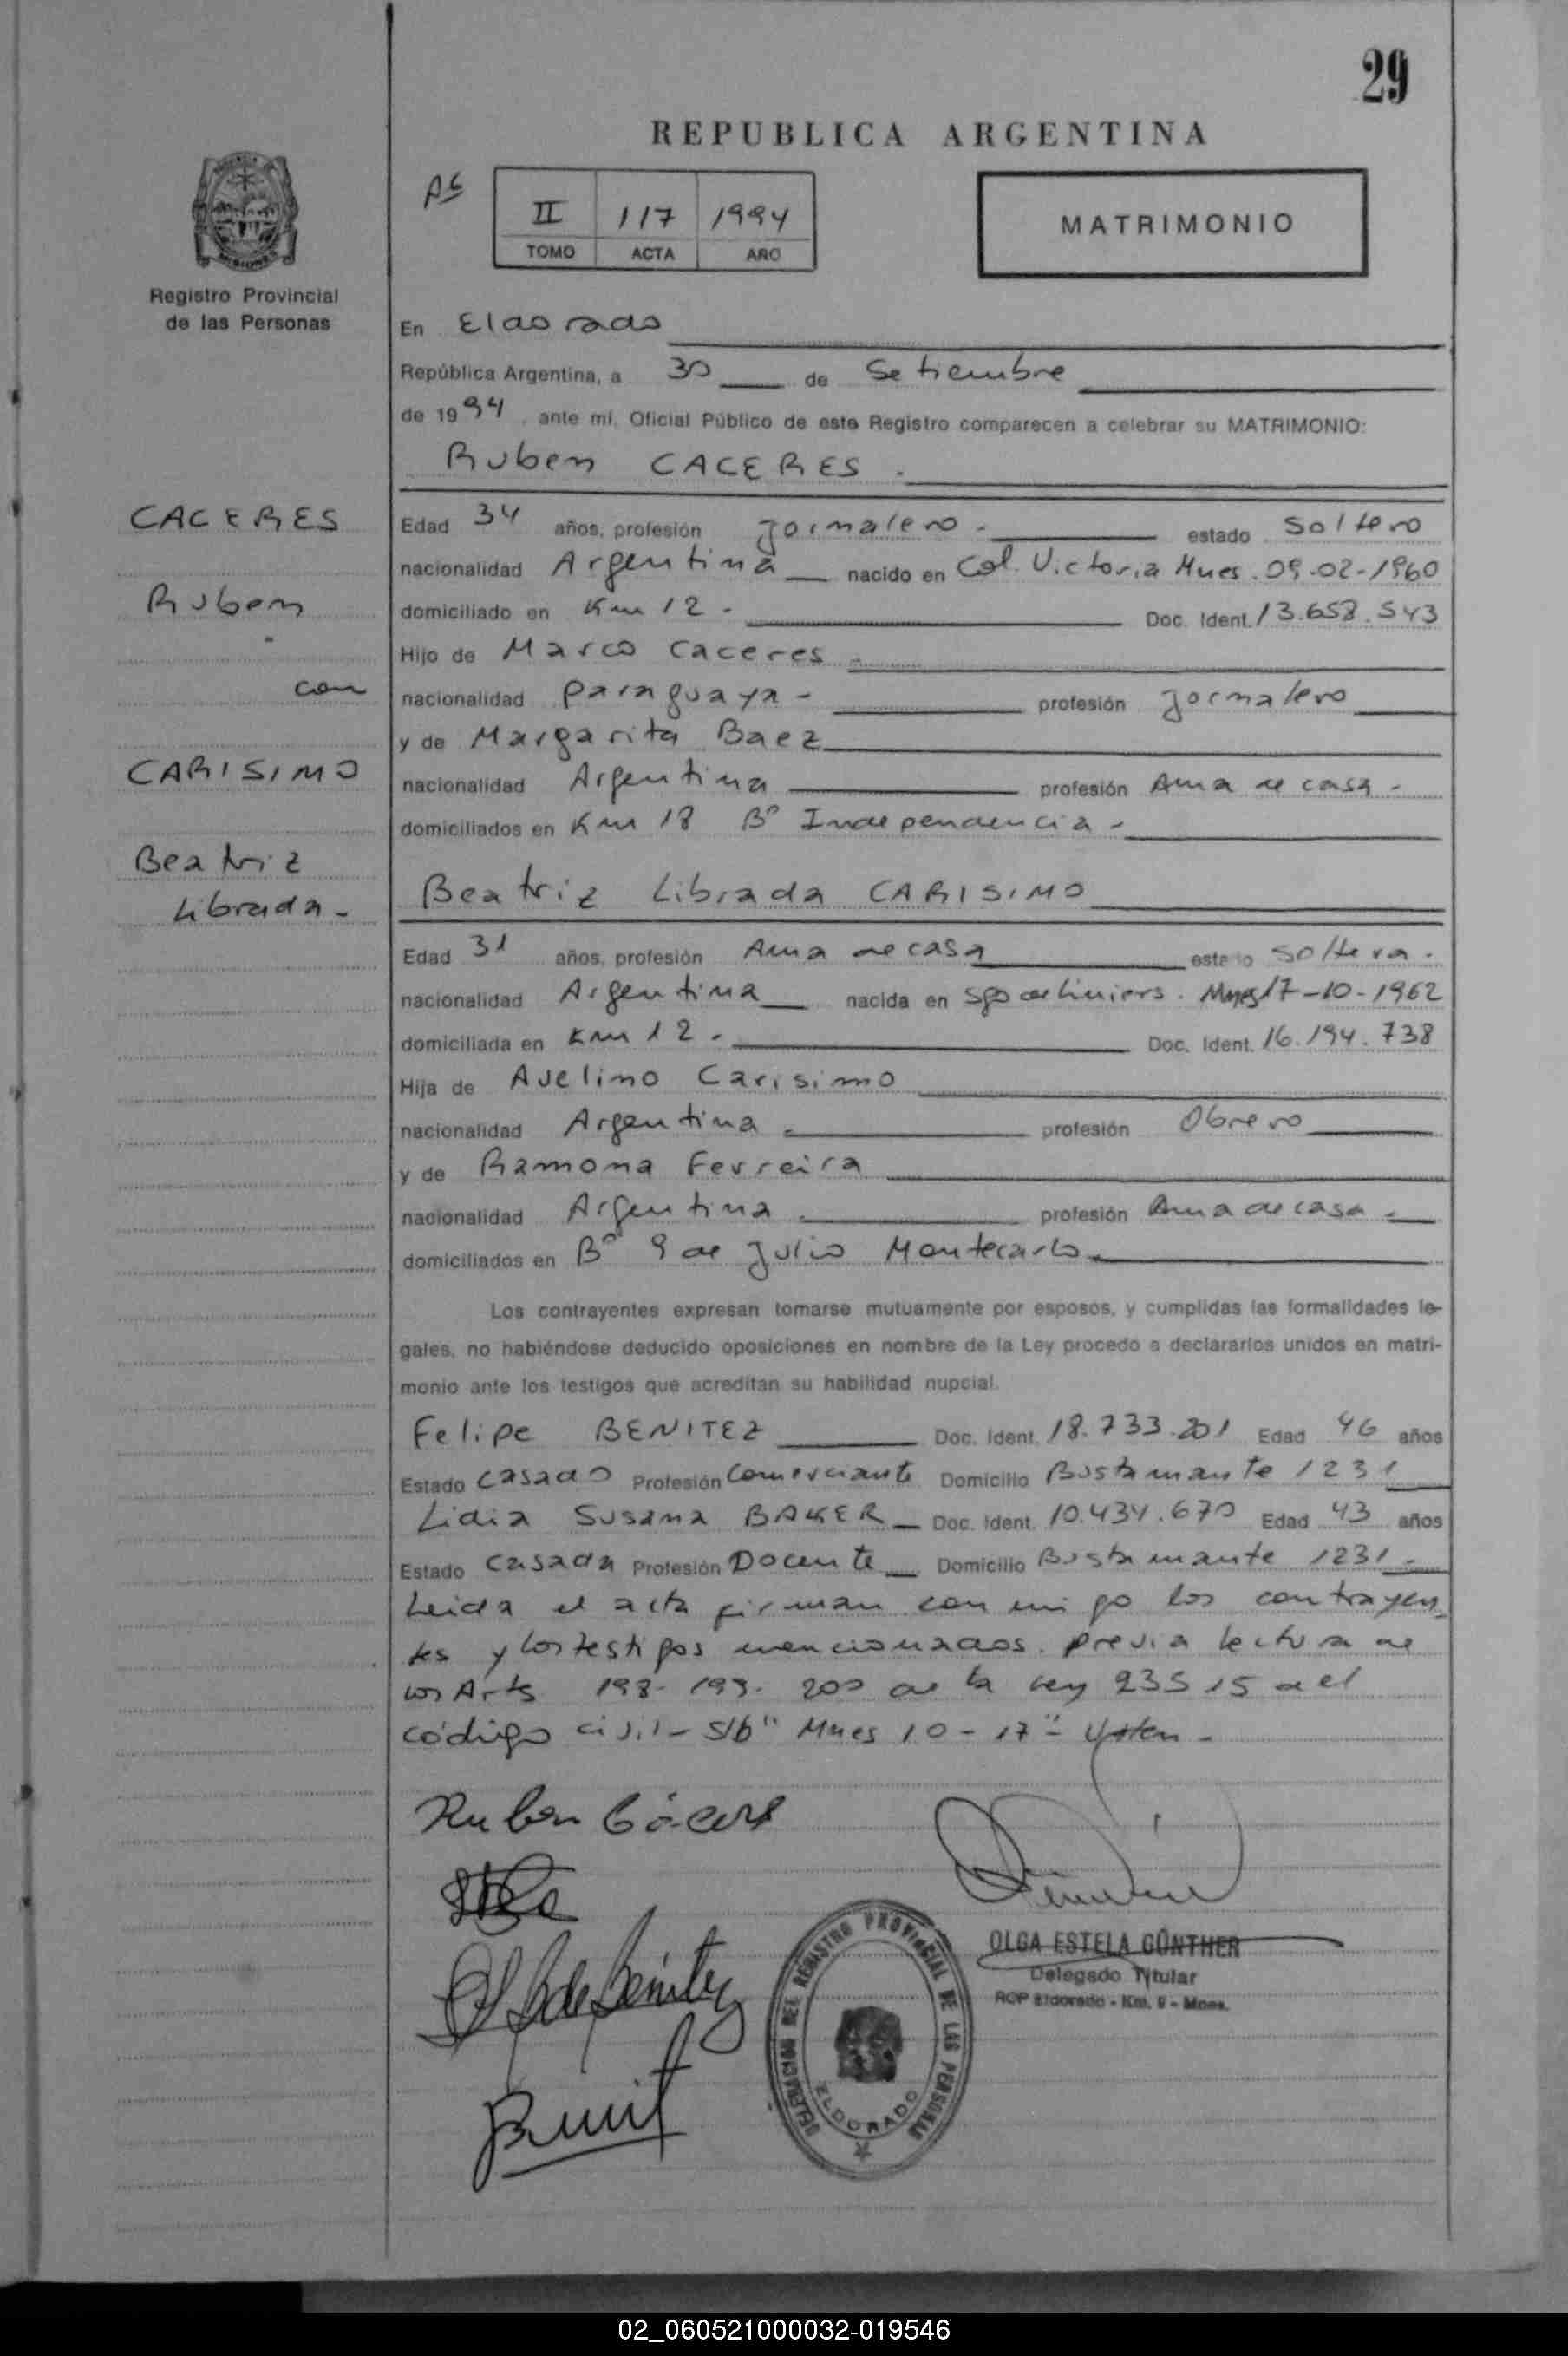 29
REPUBLICA ARGENTINA
II 117 1994
TOMO ACTA AÑO
MATRIMONIO
MISIONES
Registro Provincial
de las Personas
En Eldorado
República Argentina, a 30 de Setiembre
de 1994, ante mí, Oficial Público de este Registro comparecen a celebrar su MATRIMONIO:
Ruben CACERES.
CACERES
Ruben
con
CARISIMO
Beatriz
Librada-
Edad 34 años, profesión Jornalero- estado Soltero
nacionalidad Argentina nacido en Col. Victoria Mnes. 09-02-1960
domiciliado en Km 12- Doc. Ident. 13.658.543
Hijo de Marco Caceres-
nacionalidad paraguaya- profesión Jornalero
y de Margarita Baez
nacionalidad Argentina profesión Ama de casa-
domiciliados en Km 18 Bº Independencia-
Beatriz Librada CARISIMO
Edad 31 años, profesión Ama de casa estado soltera.
nacionalidad Argentina nacida en Sgo de Liniers. Mnes 17-10-1962
domiciliada en Km 12- Doc. Ident. 16.194.738
Hija de Avelino Carisimo
nacionalidad Argentina- profesión Obrero
y de Ramona Ferreira
nacionalidad Argentina- profesión Ama de casa-
domiciliados en Bº 9 de Julio Montecarlo-
Los contrayentes expresan tomarse mutuamente por esposos, y cumplidas las formalidades le-
gales, no habiéndose deducido oposiciones en nombre de la Ley procedo a declararlos unidos en matri-
monio ante los testigos que acreditan su habilidad nupcial.
Felipe BENITEZ Doc. Ident. 18.733.201 Edad 46 años
Estado casado Profesión Comerciante Domicilio Bustamante 1231
Lidia Susana BAKER- Doc. Ident. 10.434.670 Edad 43 años
Estado Casada Profesión Docente Domicilio Bustamante 1231-
Leida el acta firman con migo los contrayen
tes y los testigos mencionados. previa lectura de
los Arts 198-199-200 de la Ley 23515 del
código civil- S/b" Mnes 10-17"-
Ruben Cáceres
OLGA ESTELA GÜNTHER
Delegado Titular
RCP Eldorado - Km. 9 - Mnes.
DELEGACION DEL REGISTRO PROVINCIAL DE LAS PERSONAS
ELDORADO
02_060521000032-019546